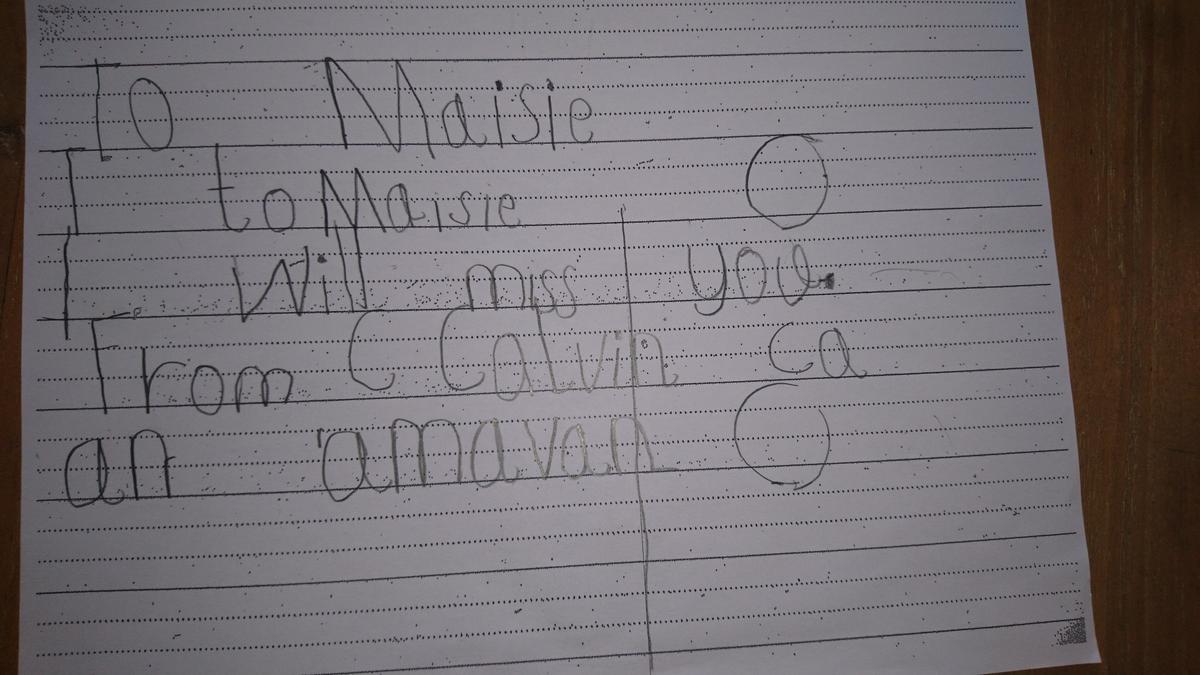 To Maisie
I to Maisie
I will miss you.
From C Calvin ca
an amavan